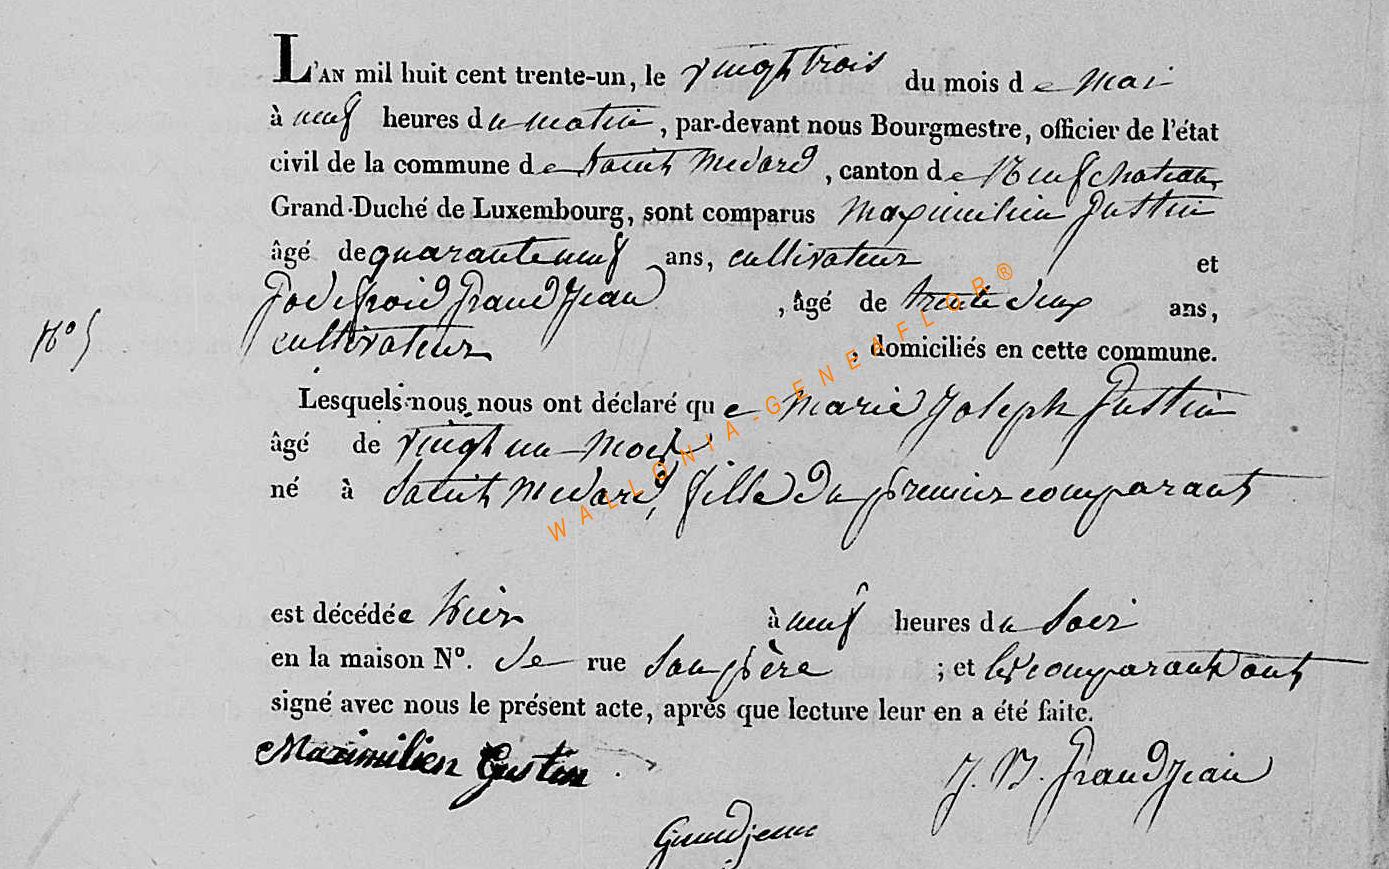 L'AN mil huit cent trente-un, le vingt trois du mois de mai
à neuf heures du matin, par-devant nous Bourgmestre, officier de l'état
civil de la commune de Saint Medard, canton de Neufchateau,
Grand-Duché de Luxembourg, sont comparus Maximilien Gustin
âgé de quarante neuf ans, cultivateur et
Godefroid Grand Jean, âgé de trente deux ans,
N° 5
cultivateur, domiciliés en cette commune.
Lesquels nous nous ont déclaré que Marie Joseph Gustin
âgé de vingt un mois
né à Saint Medard, fille du premier comparant
est décédée hier à neuf heures du soir
en la maison N°. de rue son père ; et les comparants ont
signé avec nous le présent acte, après que lecture leur en a été faite.
Maximilien Gustin J. B. Grand Jean
Grandjean
WALLONIA-GENEAFLOR®